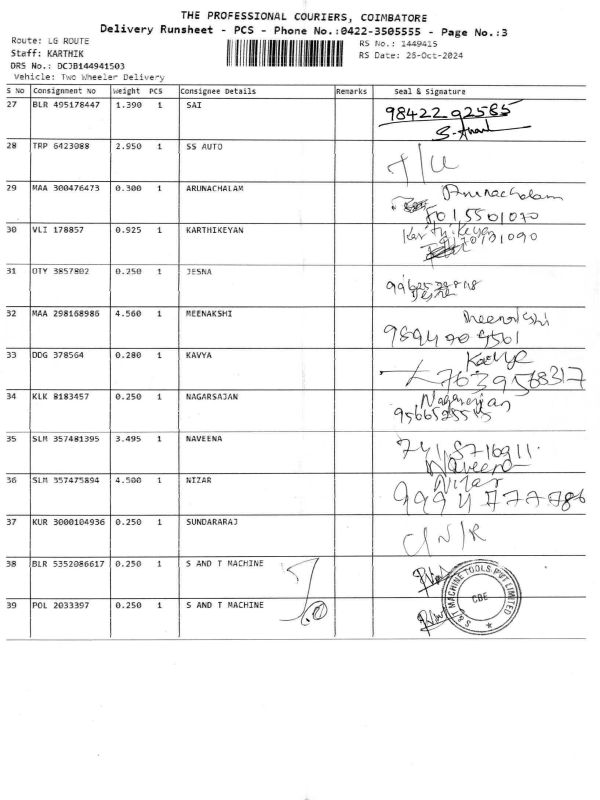 THE PROFESSIONAL COURIERS, COIMBATORE
Delivery Runsheet - PCS - Phone No.:0422-3505555 - Page No.:3
Route: LG ROUTE
RS No.: 1449415
Staff: KARTHIK
RS Date: 26-Oct-2024
DRS No.: DCJB144941503
Vehicle: Two Wheeler Delivery
S No Consignment No Weight PCS Consignee Details Remarks Seal & Signature
27 BLR 495178447 1.390 1 SAI 98422 92585
S. Anand
28 TRP 6423088 2.950 1 SS AUTO
29 MAA 300476473 0.300 1 ARUNACHALAM Arunachalam
8015501070
30 VLI 178857 0.925 1 KARTHIKEYAN Karthikeyan
31 OTY 3857802 0.250 1 JESNA
Jesna
32 MAA 298168986 4.560 1 MEENAKSHI Meenakshi
33 DDG 378564 0.280 1 KAVYA Kavya
7639568317
34 KLK 8183457 0.250 1 NAGARSAJAN Nagarajan
35 SLM 357481395 3.495 1 NAVEENA
Naveena
36 SLM 357475894 4.500 1 NIZAR Nizar
9994777786
37 KUR 3000104936 0.250 1 SUNDARARAJ
38 BLR 5352086617 0.250 1 S AND T MACHINE
39 POL 2033397 0.250 1 S AND T MACHINE
S & T MACHINE TOOLS PVT LIMITED
CBE